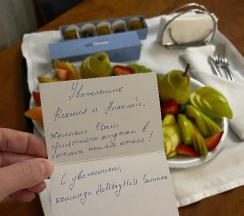 Уважаемые
Ксения и Николай,
желаем Вам
приятного отдыха в
стенах нашего отеля!
С уважением,
команда Holiday Hall Samara